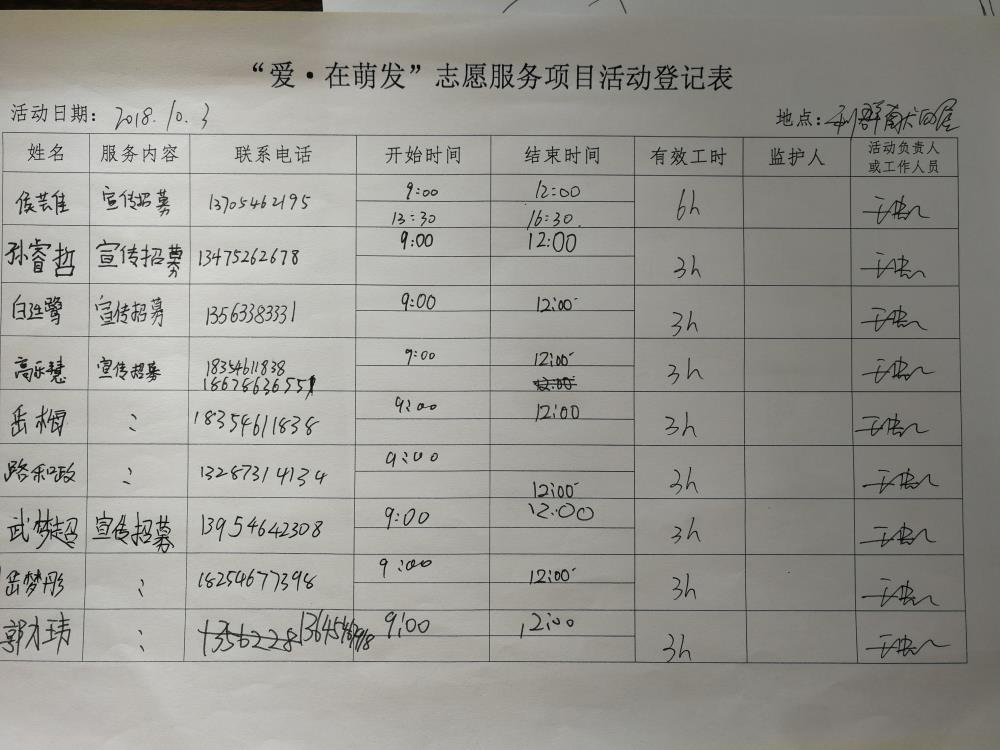 “爱·在萌发”志愿服务项目活动登记表
活动日期: 2018.10.3 地点: 利群献血屋
姓名 服务内容 联系电话 开始时间 结束时间 有效工时 监护人 活动负责人或工作人员
侯芸佳 宣传招募 13705462195 9:00 12:00 6h
13:30 16:30
孙睿哲 宣传招募 13475262678 9:00 12:00 3h
宣传招募 13563383331 9:00 12:00 3h
高乐慧 宣传招募 18354611838 9:00 12:00 3h
18678636551 12:00
岳梅 〃 18354611838 9:00 12:00 3h
路和政 〃 13287314134 9:00 12:00 3h
武梦超 宣传招募 13954642308 9:00 12:00 3h
岳梦彤 〃 18254677398 9:00 12:00 3h
郭才玮 〃 1356228 9:00 12:00 3h